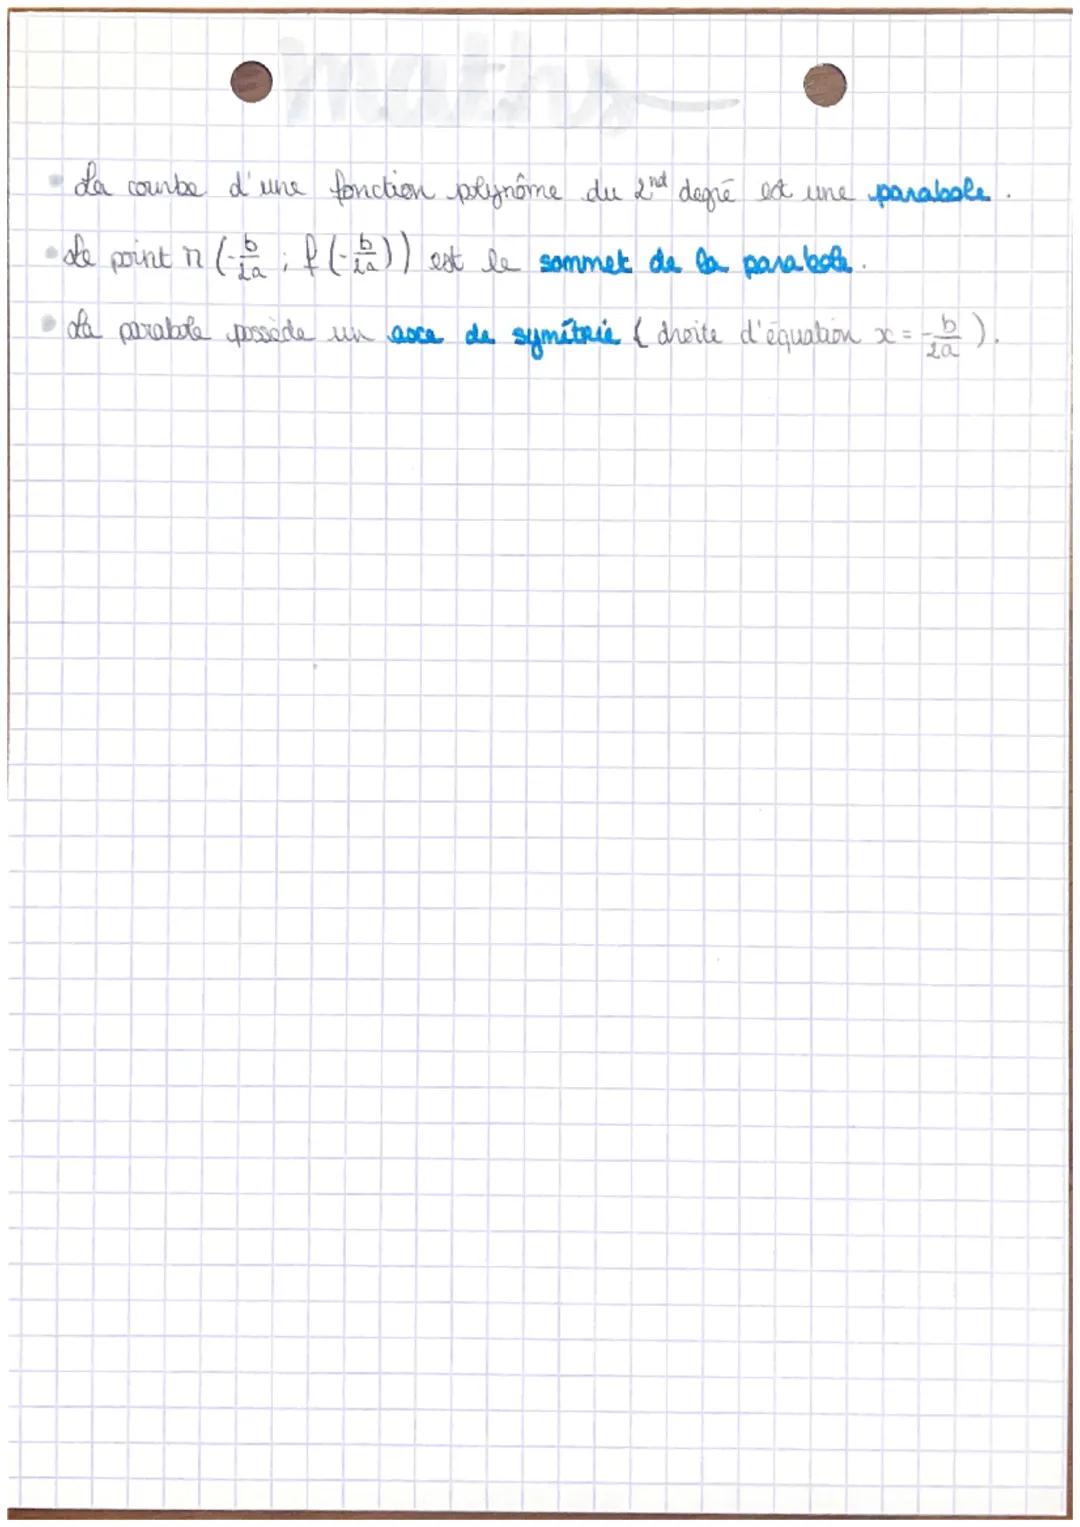 La courbe d'une fonction polynôme du 2nd degré est une parabole.
Le point M (-b/2a ; f(-b/2a)) est le sommet de la parabole.
La parabole possède un axe de symétrie (droite d'équation x = -b/2a).